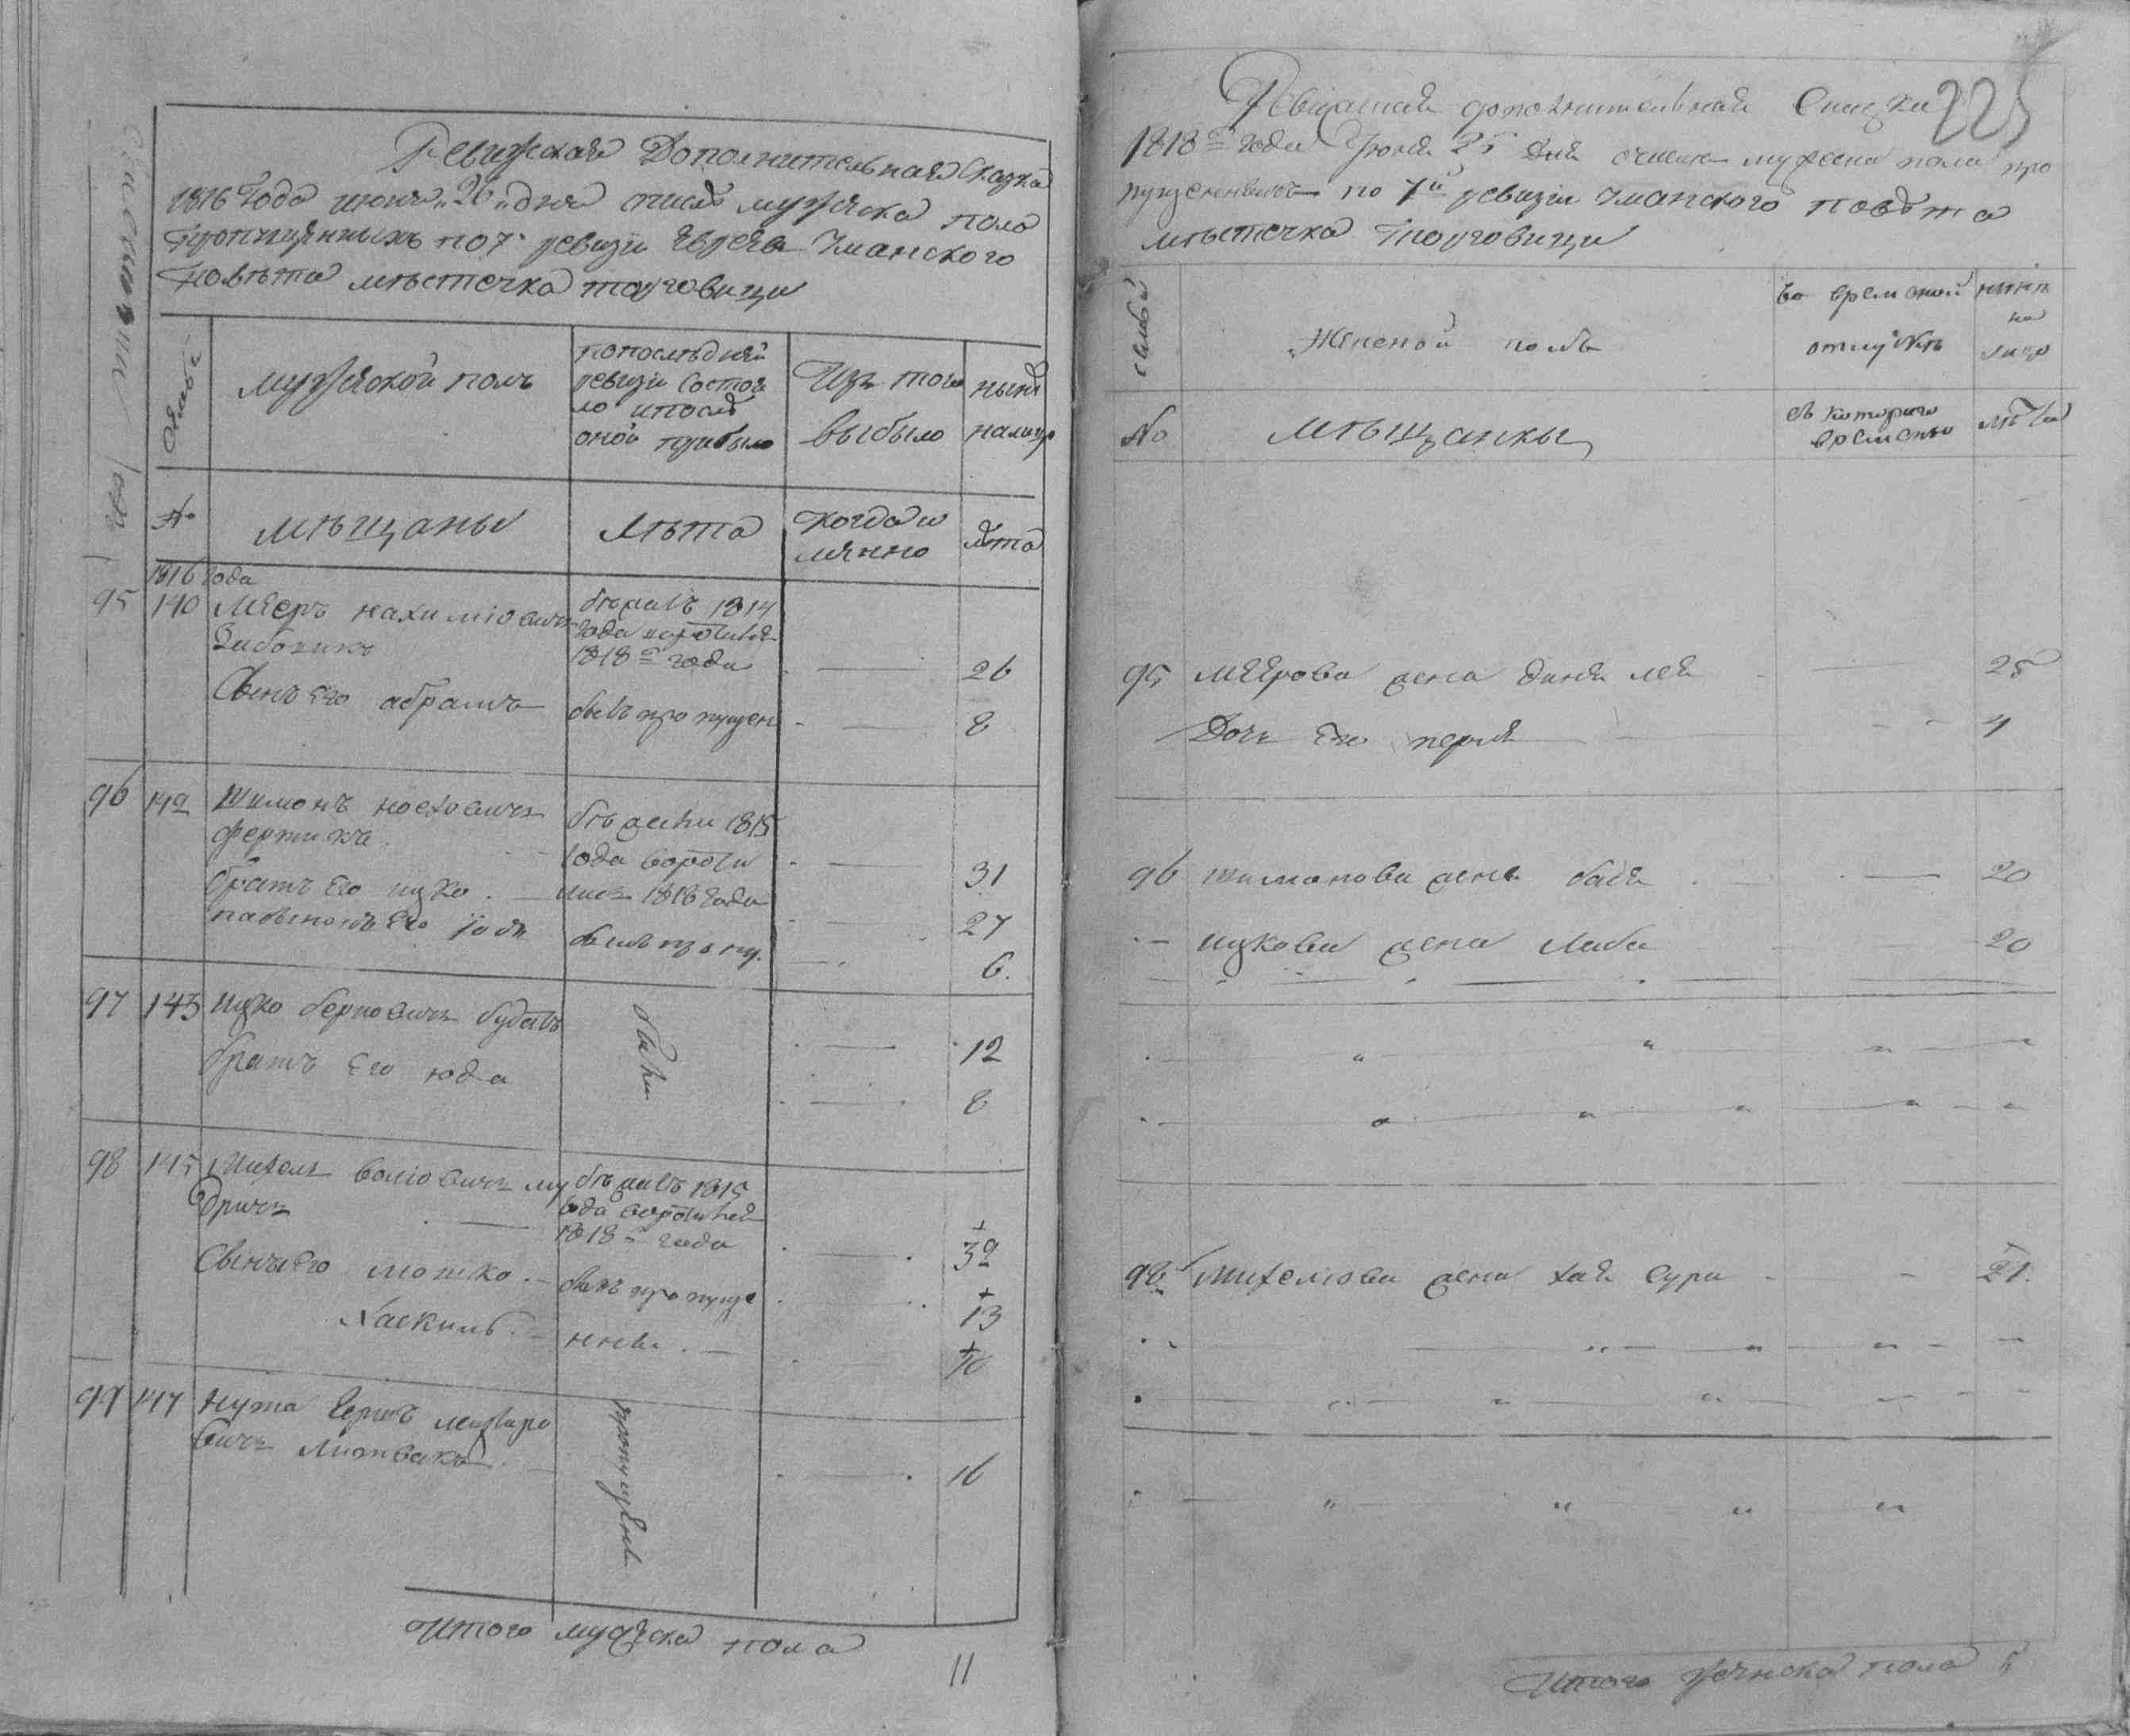 Ревижская Дополнительная Сказка
1816 Года июня 20 дня очисле мужеска пола
пропущенныхъ по 7 ревизи Евреев Уманского
повѣта мѣстечка торговици
Семьѣ
мужеской полъ
попослѣдней
ревизи состоя
ло ипослѣ
оной прибыло
Изъ того
выбыло
нынѣ
налицо
№
мѣщаны
лѣта
когда и
менно
лѣта
1816 года
95 140 Меeръ нахимовичъ
бежалъ 1814
года
1818 года
26
Сынъ Его абрамъ
былъ пропущен
8
96 142 Шимонъ
бежали 1815
года вороти
лись 1818 года
31
братъ Его ицко
27
Его
былъ пропу.
6.
97 143 ицко берковичъ
12
братъ Его юда
8
98 145 Михель
бежалъ 1815
года
1818 года
32
Сынъ Его мошко
былъ пропуще
13
Хаскиль
нны
10
99 147 Нута Гершъ
вичъ Литвакъ
пропущенъ
16
Итого мужеска пола
11
225
Ревизская дополнительная Сказка
1818 года Июня 25 дня очисле мужеска пола про
пущенныхъ по 7й ревизии Уманского повѣта
мѣстечка Торговици
семьи
Женской полъ
во временной
отлучкѣ
нынѣ
на
лицо
№
Мѣщанки
съ которого
времены
лѣта
95 Меерова жена лея
25
Дочь Его перля
4
96 шимонова жена бася
20
ицкова жена Либа
20
98 Михелова жена хая сура
21.
Итого женска пола 5